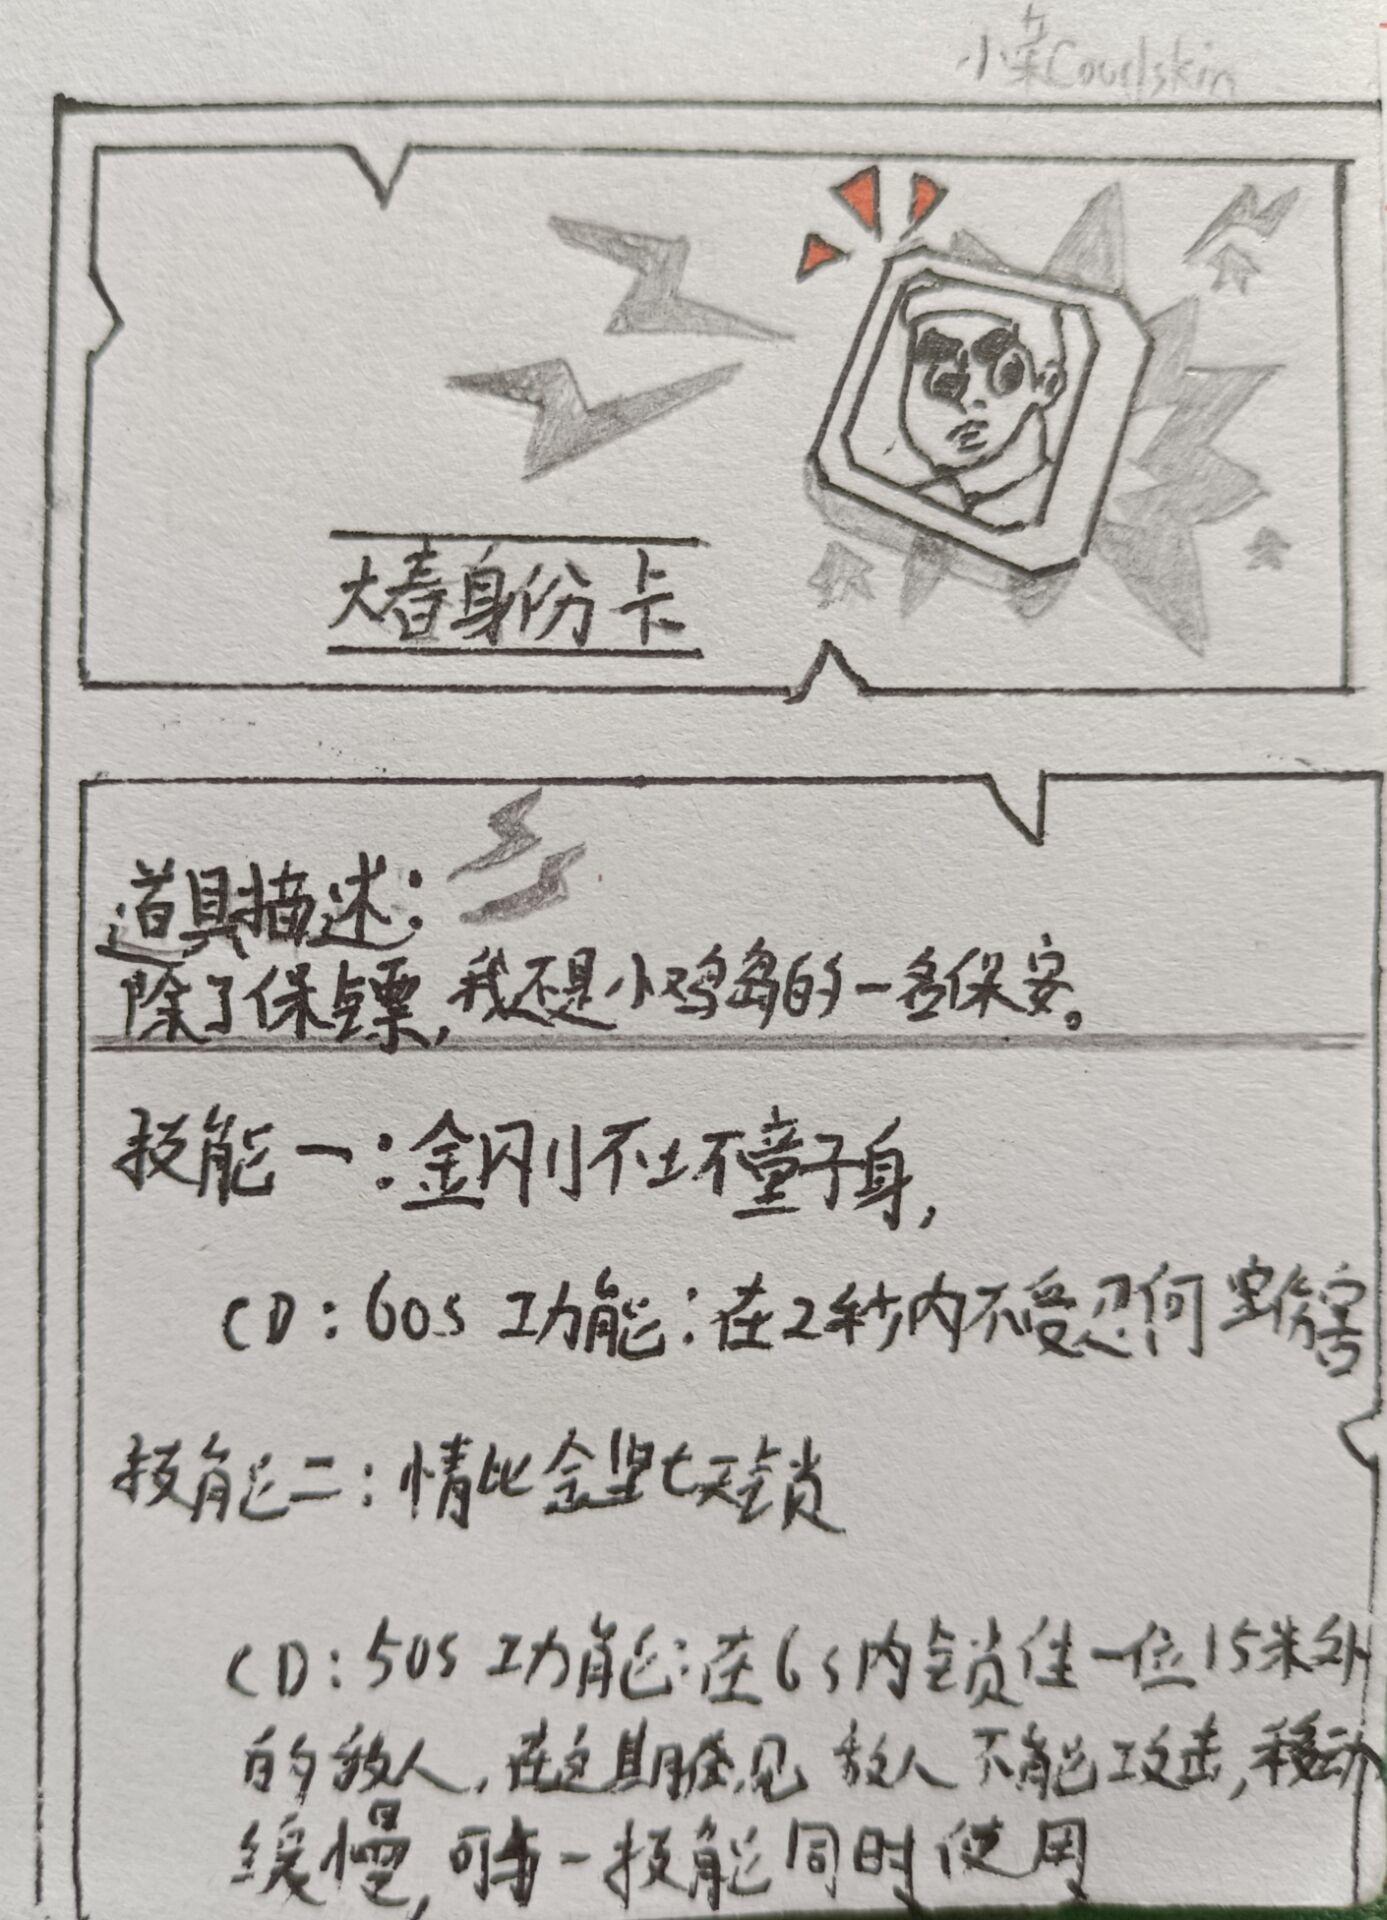 小呆Coudskin
大春身份卡
道具描述：
除了保镖，我还是小鸡岛的一名保安。
技能一：金刚不坏童子身，
CD：60s 功能：在2秒内不受忍何 伤害
技能二：情比金坚七天锁
CD：50s 功能：在6s内锁住一位15米外
的敌人，在这期间 敌人不能攻击，移动
缓慢，可与一技能同时使用